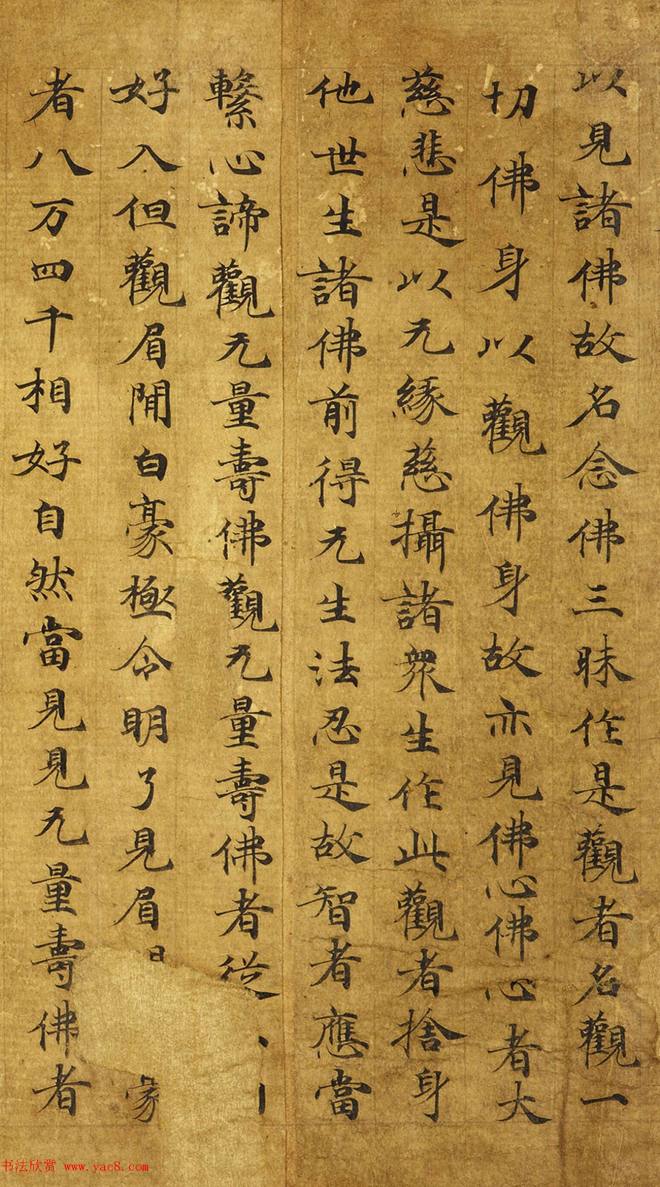 以見諸佛故名念佛三昧作是觀者名觀一
切佛身以觀佛身故亦見佛心佛心者大
慈悲是以无緣慈攝諸衆生作此觀者捨身
他世生諸佛前得无生法忍是故智者應當
繫心諦觀无量壽佛觀无量壽佛者從
好入但觀眉間白豪極令明了見眉
者八万四千相好自然當見見无量壽佛者
书法欣赏 www.yac8.com